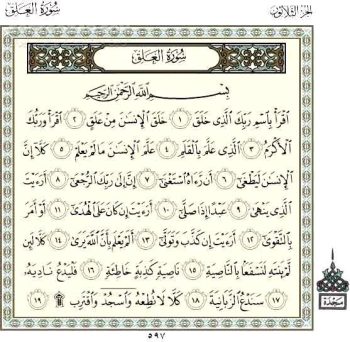 سُورَةُ العَلَقِ
الجُزْءُ الثَّلَاثُونَ
سُورَةُ العَلَقِ
بِسْمِ اللَّهِ الرَّحْمَٰنِ الرَّحِيمِ
ٱقْرَأْ بِٱسْمِ رَبِّكَ ٱلَّذِى خَلَقَ ١ خَلَقَ ٱلْإِنسَٰنَ مِنْ عَلَقٍ ٢ ٱقْرَأْ وَرَبُّكَ
ٱلْأَكْرَمُ ٣ ٱلَّذِى عَلَّمَ بِٱلْقَلَمِ ٤ عَلَّمَ ٱلْإِنسَٰنَ مَا لَمْ يَعْلَمْ ٥ كَلَّآ إِنَّ
ٱلْإِنسَٰنَ لَيَطْغَىٰٓ ٦ أَن رَّءَاهُ ٱسْتَغْنَىٰٓ ٧ إِنَّ إِلَىٰ رَبِّكَ ٱلرُّجْعَىٰٓ ٨ أَرَءَيْتَ
ٱلَّذِى يَنْهَىٰ ٩ عَبْدًا إِذَا صَلَّىٰٓ ١٠ أَرَءَيْتَ إِن كَانَ عَلَى ٱلْهُدَىٰٓ ١١ أَوْ أَمَرَ
بِٱلتَّقْوَىٰٓ ١٢ أَرَءَيْتَ إِن كَذَّبَ وَتَوَلَّىٰٓ ١٣ أَلَمْ يَعْلَم بِأَنَّ ٱللَّهَ يَرَىٰ ١٤ كَلَّا لَئِن
لَّمْ يَنتَهِ لَنَسْفَعًۢا بِٱلنَّاصِيَةِ ١٥ نَاصِيَةٍ كَٰذِبَةٍ خَاطِئَةٍ ١٦ فَلْيَدْعُ نَادِيَهُۥ
١٧ سَنَدْعُ ٱلزَّبَانِيَةَ ١٨ كَلَّا لَا تُطِعْهُ وَٱسْجُدْ وَٱقْتَرِب ۩ ١٩
سَجْدَة
٥٩٧